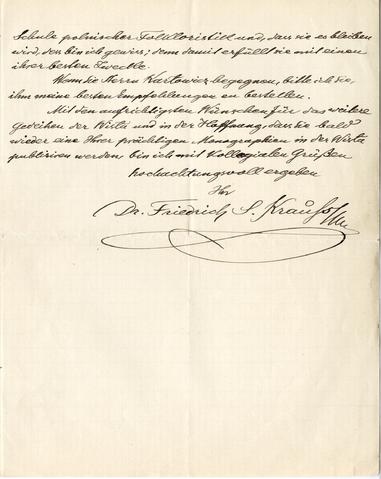 Schule polnischer Folkloristik und, dass sie es bleiben
wird, des bin ich gewiss; denn damit erfüllt sie mit einen
ihrer besten Zwecke.
Wenn sie Herrn Karłowicz begegnen, bitte ich sie,
ihm meine besten Empfehlungen zu bestellen.
Mit den aufrichtigsten Wünschen für das weitere
Gedeihen der Wisła und in der Hoffnung, dass sie bald
wieder eine Ihrer prächtigen Monographien in der Wisła
publiziren werden, bin ich mit kollegialen Grüssen
hochachtungsvoll ergeben
Ihr
Dr. Friedrich S. Krauss